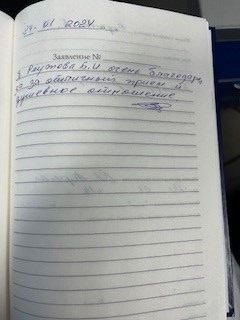 24. 01 2024
Заявление №
Я, Раупова Б.И очень благодарна
за отличный прием и
душевное отношение